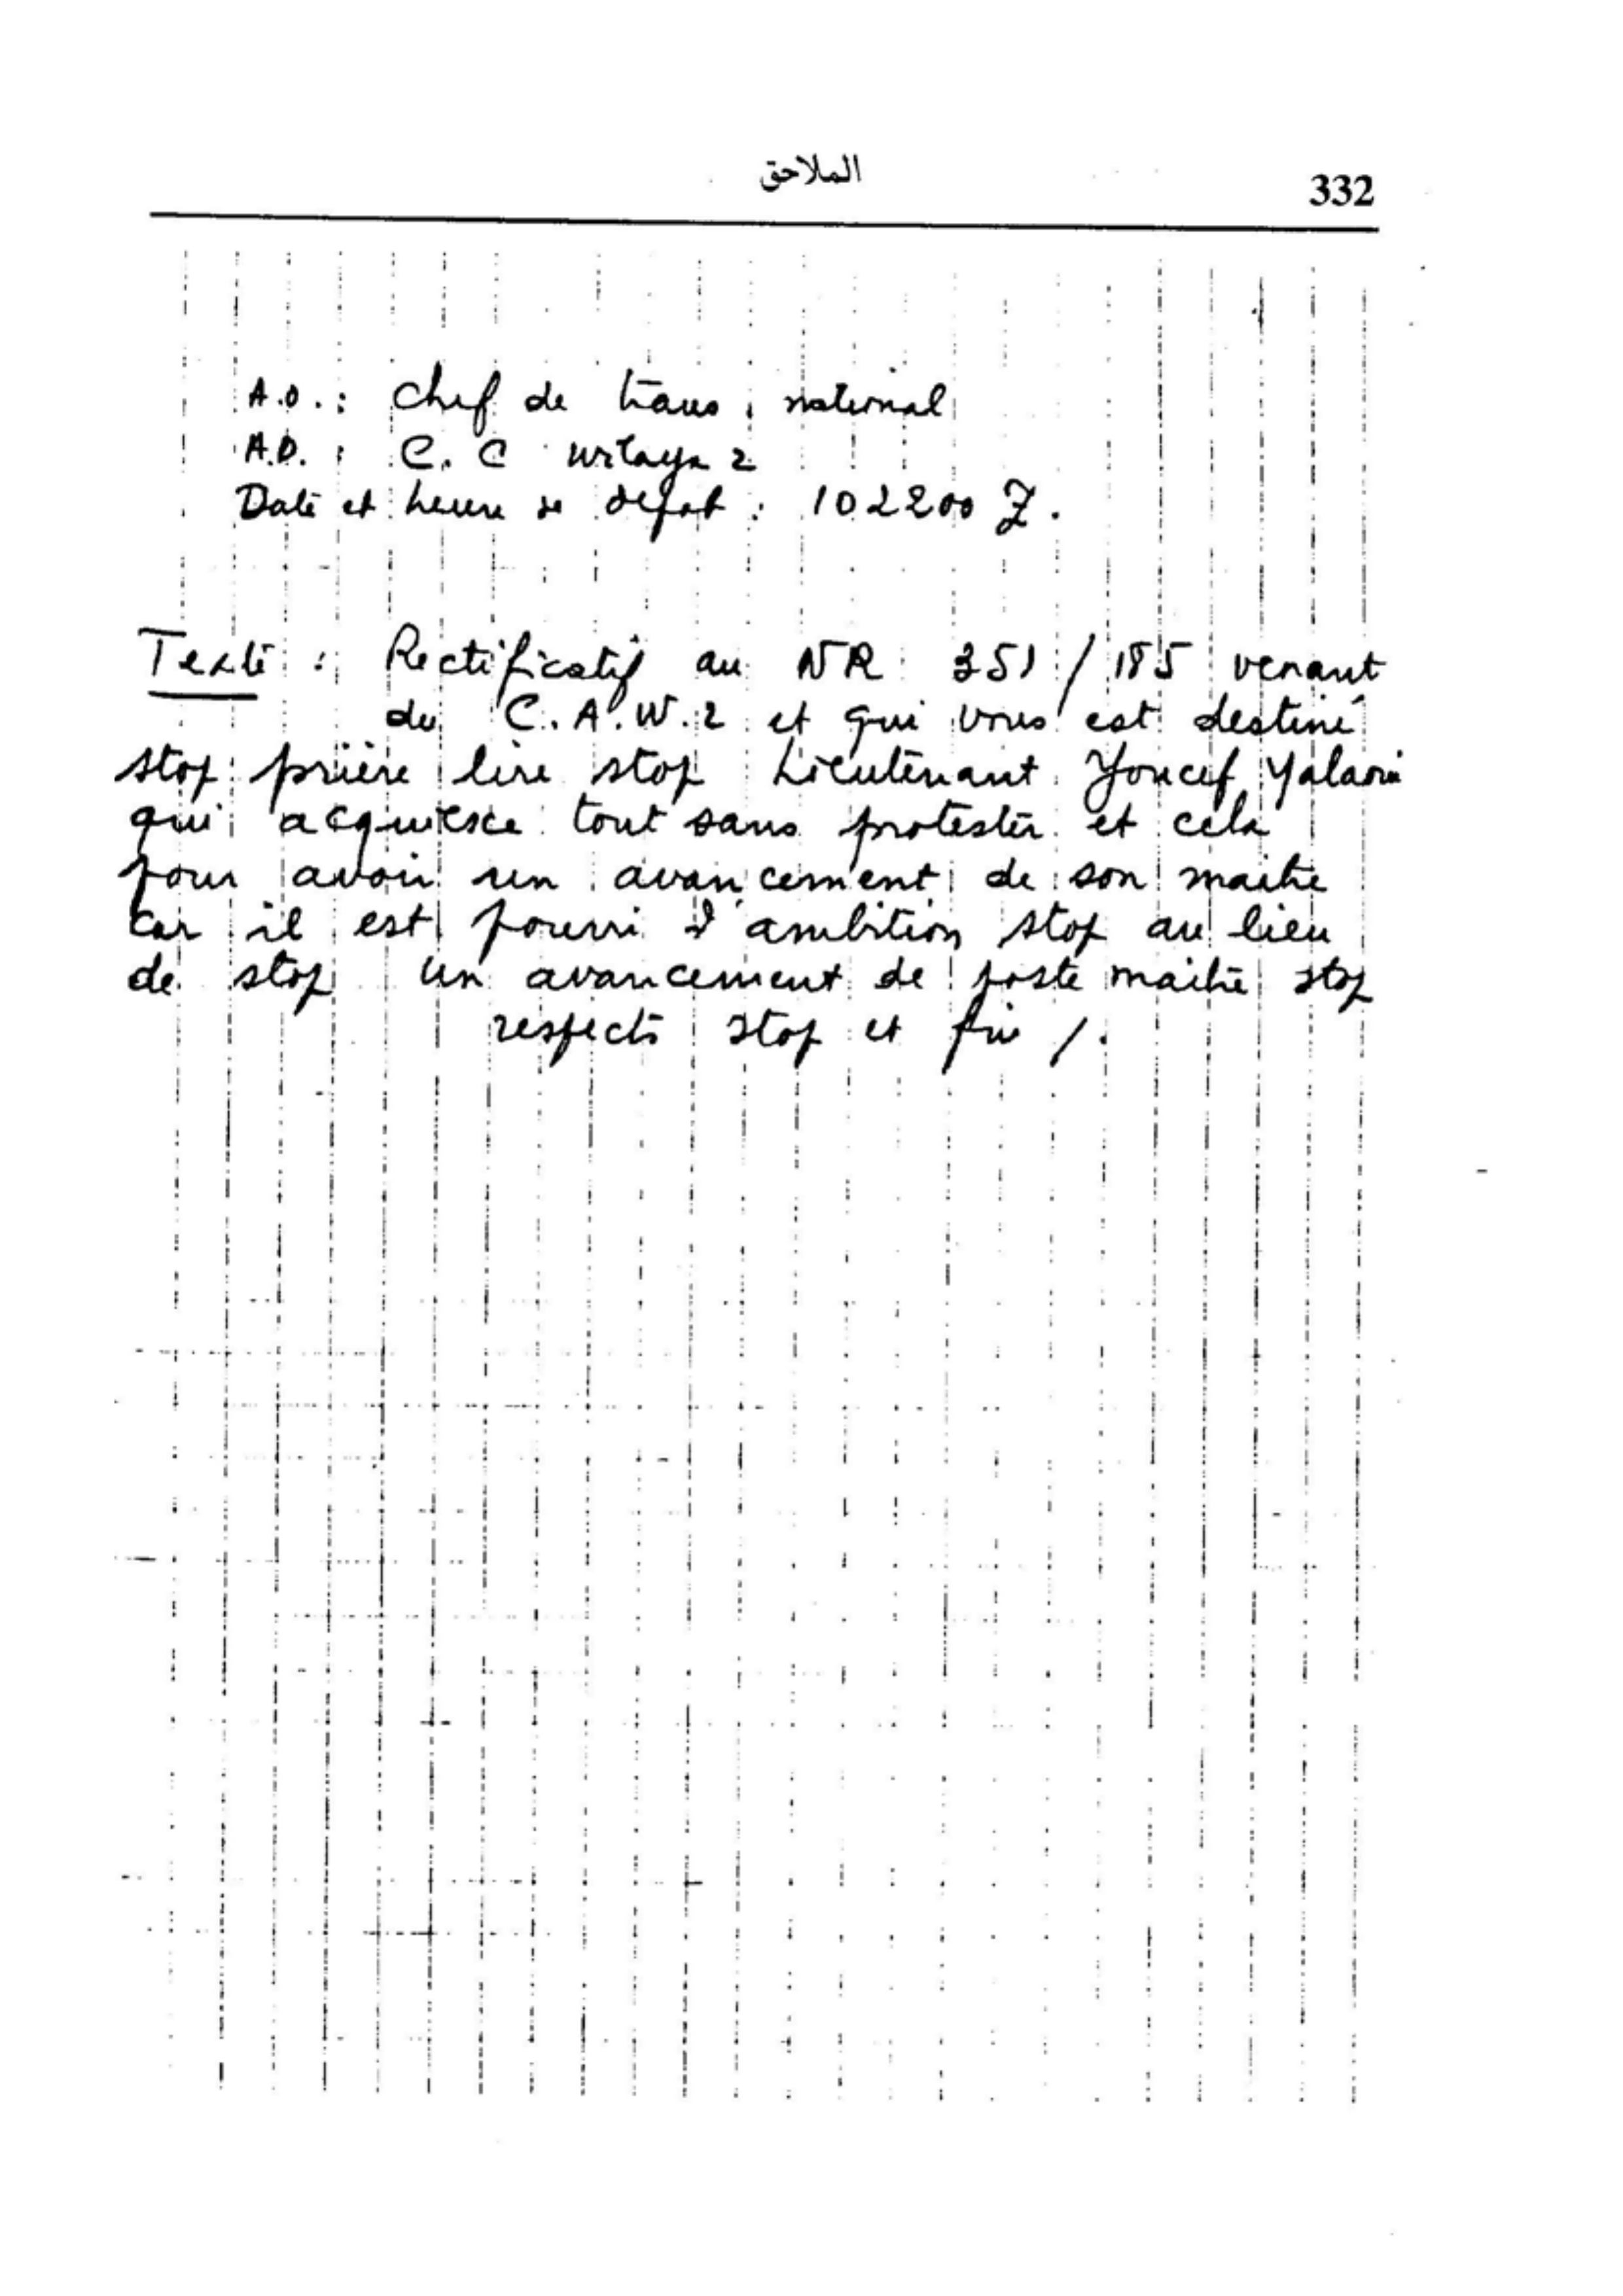 الملاحق
332
A.O. : Chef de trans national
A.D. : C. C wilaya 2
Date et heure de dépôt : 102200 Z.
Texte : Rectificatif au NR 351 / 185 venant
du C.A.W.2 et qui vous est destiné
stop prière lire stop Lieutenant Youcef Yalaoui
qui acquiesce tout sans protester et cela
pour avoir un avancement de son maitre
car il est pourri d'ambition stop au lieu
de stop un avancement de poste maitre stop
respects stop et fin /.